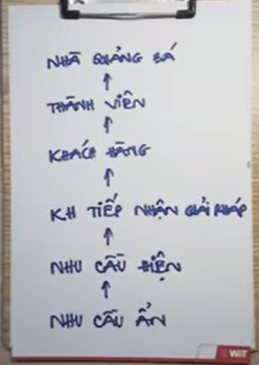 NHÀ QUẢNG BÁ
↑
THÀNH VIÊN
↑
KHÁCH HÀNG
↑
KH TIẾP NHẬN GIẢI PHÁP
↑
NHU CẦU HIỆN
↑
NHU CẦU ẨN
WIT